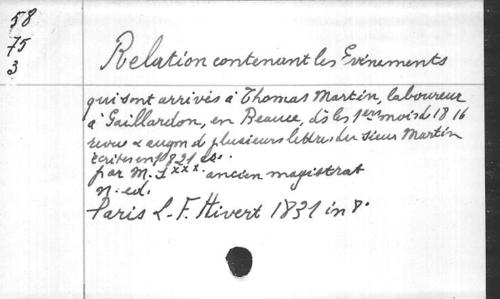 58
75
3
Relation contenant les Evénements
qui sont arrivés à Thomas Martin, laboureur
à Gaillardon, en Beauce, dès les 1ers mois d 1816
revue & augm d plusieurs lettres du sieur Martin
écrites en 1821 &.
par M. Lxxx. ancien magistrat
n. ed.
Paris L.-F. Hivert 1831 in 8.